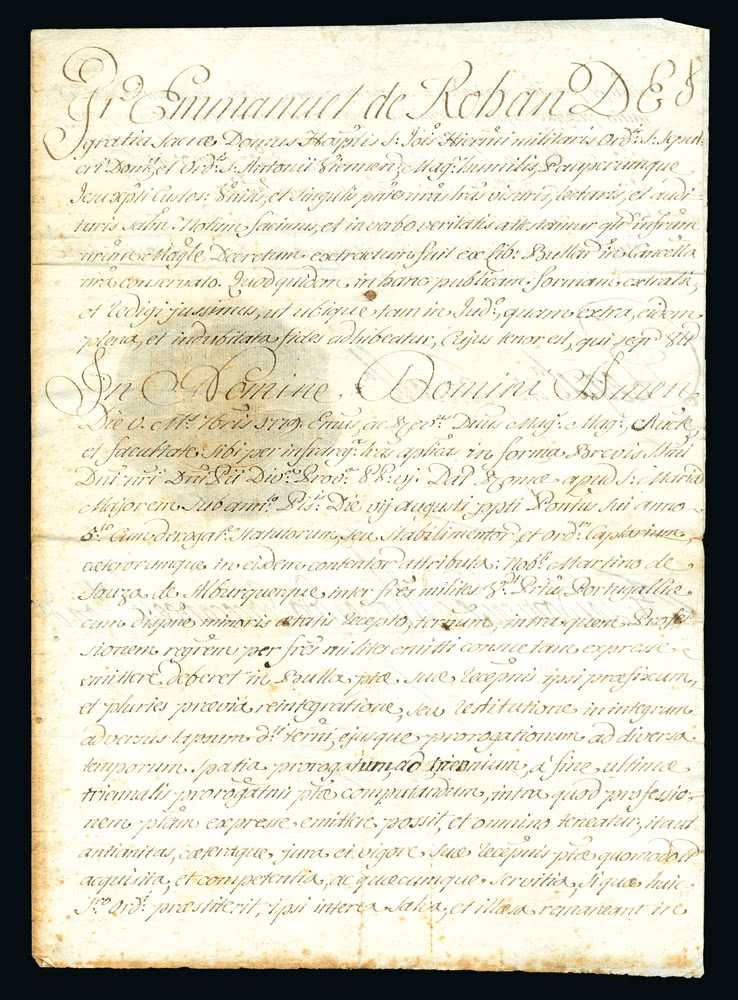 Fr. Emmanuel de Rohan DEI
gratia Sacræ Domus Hosplis S. Jois Hierni militaris Ord. S. Sepul
cri Domci et Ord. S. Antonii Viennen, Mag. humilis, Pauperumque
Jesuxpti Custos: Vnivs, et singulis pntes nras lras visuris, lecturis, et audi
turis Salm. Notum facimus, et in verbo veritatis attestamur qlr infrum
nrum Magle Decretum extractum fuit ex Lib. Bullar. in Cancella
nra conservato. Quod quidem in hanc publicam formam extrahi,
et Redigi jussimus, ut ubique tam in Jud., quam extra, eidem
plena, et indubitata fides adhibeatur, Cujus tenor est, qui seqr Vzt
In Nomine Domini Amen
Die V. Mis 7bris 1779. Emus, ac Rev. Dnus Mag. Mag., Aucte,
et facultate sibi per infran, lras aplicas in forma Brevis Smi
Dni nri Dni Pii Div. Prov. PP. vj. Dat Romæ apud S. Mariam
Majorem Sub an. Pis. Die vij augusti ppti Pontus Sui anno
5.to Cum derogat. Statutorum, seu Stabilimentor. et ord. Caplarium
cæterorumque in eisdem contentor attributa: Nob. Martino de
Souza de Alburquerque inter fres milites V. Prius Portugalliæ
cum dispne minoris ætatis recepto, terum, intra quem Profes
sionem regrem per fres milites emitti consuetam expresse
emittere deberet in Bulla ptæ suæ recepnis ipsi præfixum,
et pluries prævia reintegratione, seu restitutione in integrum
adversus lapsum d. termi, ejusque prorogationum ad diversa
temporum spatia prorogatum, ad triennium, a fine ultimæ
triennalis prorogatnis ptæ computandum, intra quod professio
nem ptam expresse emittere possit, et omnino teneatur, ita ut
antianitas, cæteraque jura ei vigore suæ recepnis ptæ quomodolt
acquisita, et competentia, ac quæcumque servitia, si quæ huic
Sro Ord. præstiterit, ipsi interea salva, et illæsa remaneant in